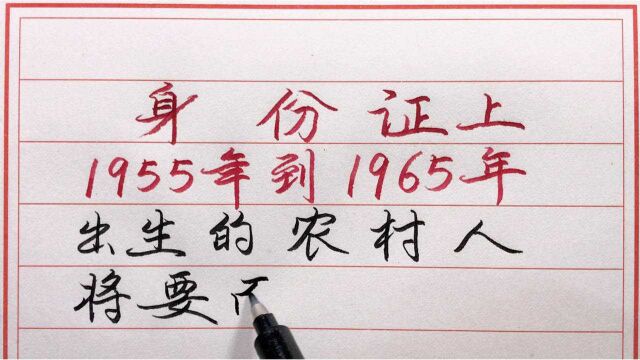 身份证上
1955年到1965年
出生的农村人
将要